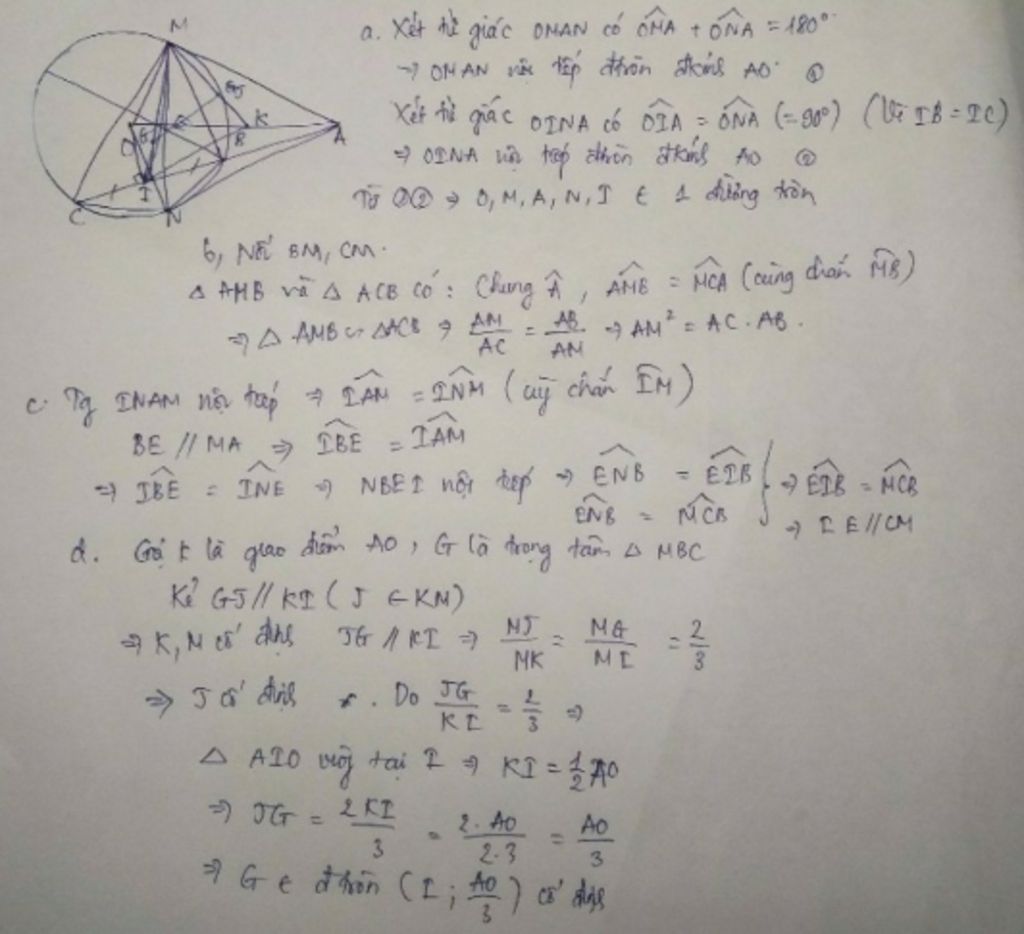 M
J
K
A
O
E
G
B
I
C
N
a. Xét tứ giác OMAN có OMA + ONA = 180°
→ OMAN nội tiếp đtròn đkính AO ①
Xét tứ giác OINA có OIA = ONA (= 90°) (Vì IB = IC)
⇒ OINA nội tiếp đtròn đkính AO ②
Từ ①② ⇒ O, M, A, N, I ∈ 1 đường tròn
b, Nối BM, CM.
Δ AMB và Δ ACB có: Chung Â, AMB = MCA (cùng chắn MB)
⇒ Δ AMB ∽ ΔACB ⇒ AM/AC = AB/AM ⇒ AM² = AC. AB.
c. Tg INAM nội tiếp ⇒ IAM = INM (chắn IM)
BE // MA ⇒ IBE = IAM
⇒ IBE = INE ⇒ NBEI nội tiếp ⇒ ENB = EIB } ⇒ EIB = MCB
ENB = MCB ⇒ IE // CM
d. Gọi K là giao điểm AO, G là trọng tâm Δ MBC
Kẻ GJ // KI (J ∈ KM)
⇒ K, M cố định JG // KI ⇒ MJ/MK = MG/MI = 2/3
⇒ J cố định . Do JG/KI = 2/3 ⇒
Δ AIO vuông tại I ⇒ KI = 1/2 AO
⇒ JG = 2KI/3 = 2. AO/2.3 = AO/3
⇒ G ∈ đtròn (I; AO/3) cố định